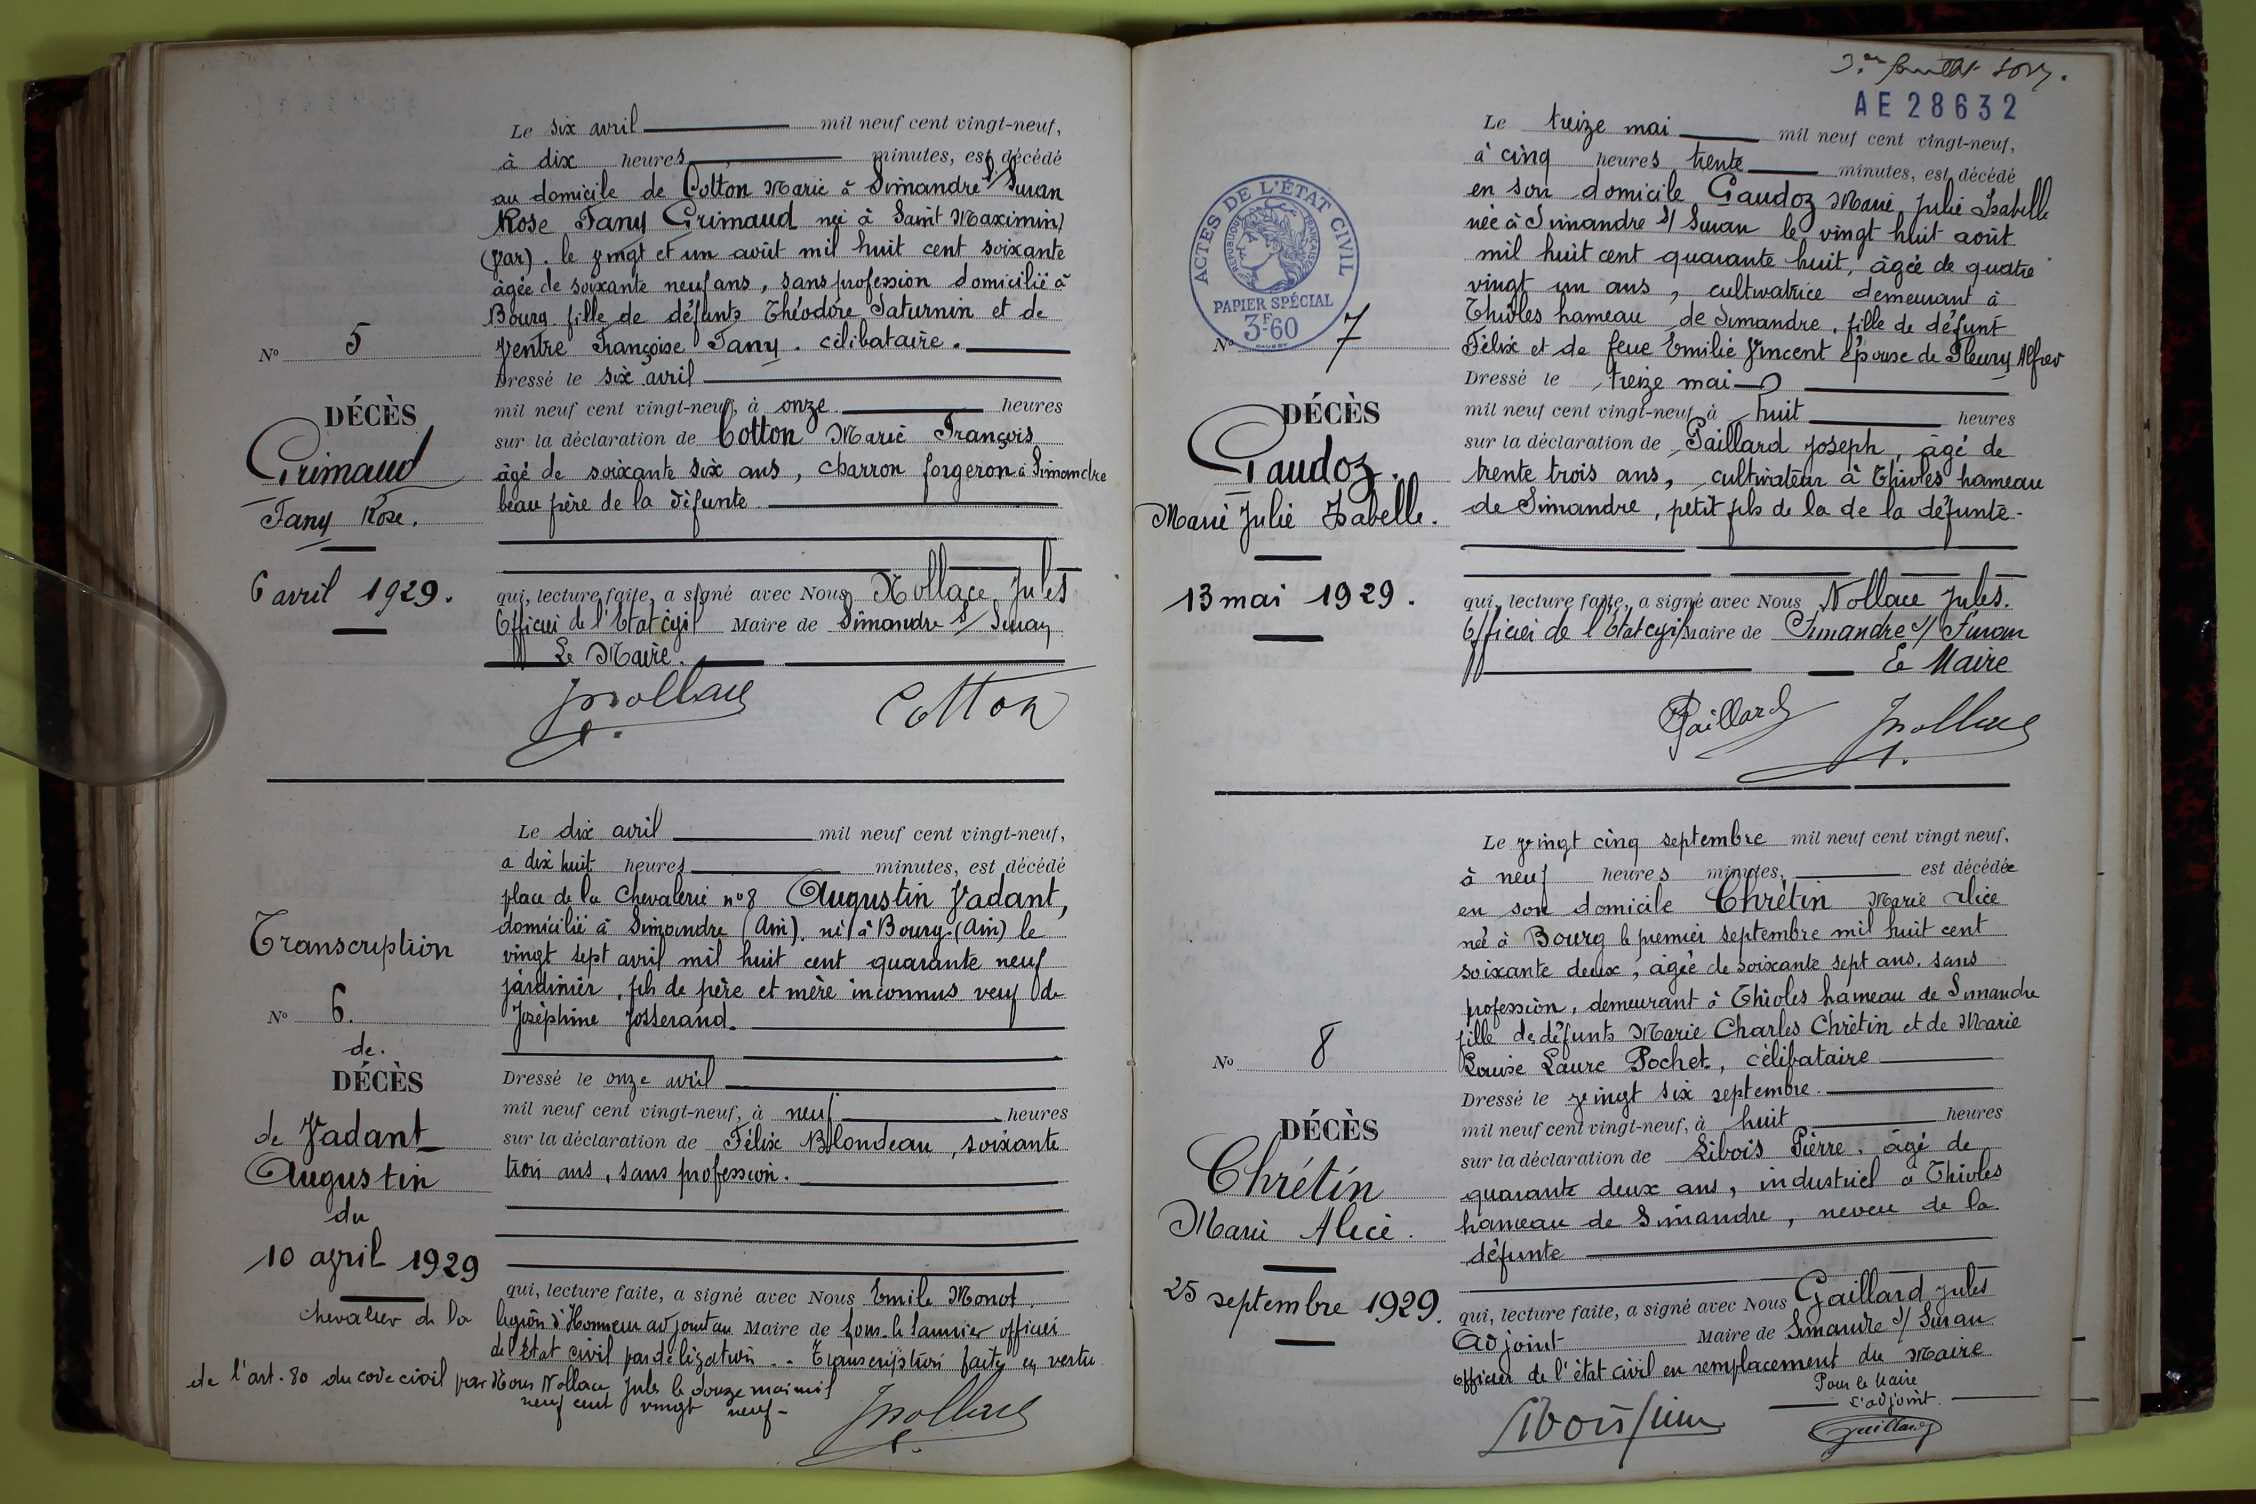 Le six avril mil neuf cent vingt-neuf,
à dix heures minutes, est décédé
au domicile de Cotton Marie à Simandre s/ Suran
Rose Fany Grimaud née à Saint Maximin
(Var). le vingt et un août mil huit cent soixante
âgée de soixante neuf ans, sans profession domicilié à
Bourg fille de défunts Théodore Saturnin et de
Ventre Françoise Fany. célibataire.
Dressé le six avril
mil neuf cent vingt-neuf, à onze heures
sur la déclaration de Cotton Marie François
âgé de soixante six ans, charron forgeron à Simandre
beau frère de la défunte
qui, lecture faite, a signé avec Nous Nollace Jules
Officier de l'Etat civil Maire de Simandre s/ Suran
Le Maire.
JNollace
Cotton
No 5
DÉCÈS
Grimaud
Fany Rose.
6 avril 1929.
Le dix avril mil neuf cent vingt-neuf,
a dix huit heures minutes, est décédé
place de la Chevalerie no 8 Augustin Vadant,
domicilié à Simandre (Ain). né à Bourg (Ain) le
vingt sept avril mil huit cent quarante neuf
jardinier, fils de père et mère inconnus veuf de
Joséphine Josserand.
Dressé le onze avril
mil neuf cent vingt-neuf, à neuf heures
sur la déclaration de Félix Blondeau, soixante
trois ans, sans profession.
qui, lecture faite, a signé avec Nous Emile Monot,
chevalier de la légion d'Honneur adjoint au Maire de Lons-le-Saunier officier
de l'état civil par délégation.. Transcription faite en vertu
de l'art. 80 du code civil par Nous Nollace Jules le douze mai mil
neuf cent vingt neuf-
JNollace
Transcription
No 6.
de.
DÉCÈS
de Vadant
Augustin
du
10 avril 1929
AE 28632
Le treize mai mil neuf cent vingt-neuf,
à cinq heures trente minutes, est décédé
en son domicile Gaudoz Marie Julie Isabelle
née à Simandre s/ Suran le vingt huit août
mil huit cent quarante huit, âgée de quatre
vingt un ans, cultivatrice demeurant à
Thioles hameau de Simandre, fille de défunt
Félix et de feue Emilie Vincent épouse de Fleury Alfred
Dressé le treize mai
mil neuf cent vingt-neuf à huit heures
sur la déclaration de Paillard Joseph, âgé de
trente trois ans, cultivateur à Thioles hameau
de Simandre, petit fils de la de la défunte-
qui, lecture faite, a signé avec Nous Nollace Jules.
Officier de l'Etat civil Maire de Simandre s/ Suran
Le Maire
Paillard
JNollace
ACTES DE L'ÉTAT CIVIL
RÉPUBLIQUE FRANÇAISE
PAPIER SPÉCIAL
3F60
No 7
DÉCÈS
Gaudoz.
Marie Julie Isabelle.
13 mai 1929.
Le vingt cinq septembre mil neuf cent vingt neuf,
à neuf heures minutes, est décédée
en son domicile Chrétin Marie Alice
née à Bourg le premier septembre mil huit cent
soixante deux, âgée de soixante sept ans, sans
profession, demeurant à Thioles hameau de Simandre
fille de défunts Marie Charles Chrétin et de Marie
Louise Laure Pochet, célibataire
Dressé le vingt six septembre.
mil neuf cent vingt-neuf, à huit heures
sur la déclaration de Libois Pierre, âgé de
quarante deux ans, industriel à Thioles
hameau de Simandre, neveu de la
défunte
qui, lecture faite, a signé avec Nous Gaillard Jules
Adjoint Maire de Simandre s/ Suran
officier de l'état civil en remplacement du Maire
Pour le Maire
L'adjoint.
Gaillard
No 8
DÉCÈS
Chrétin
Marie Alice.
25 septembre 1929.